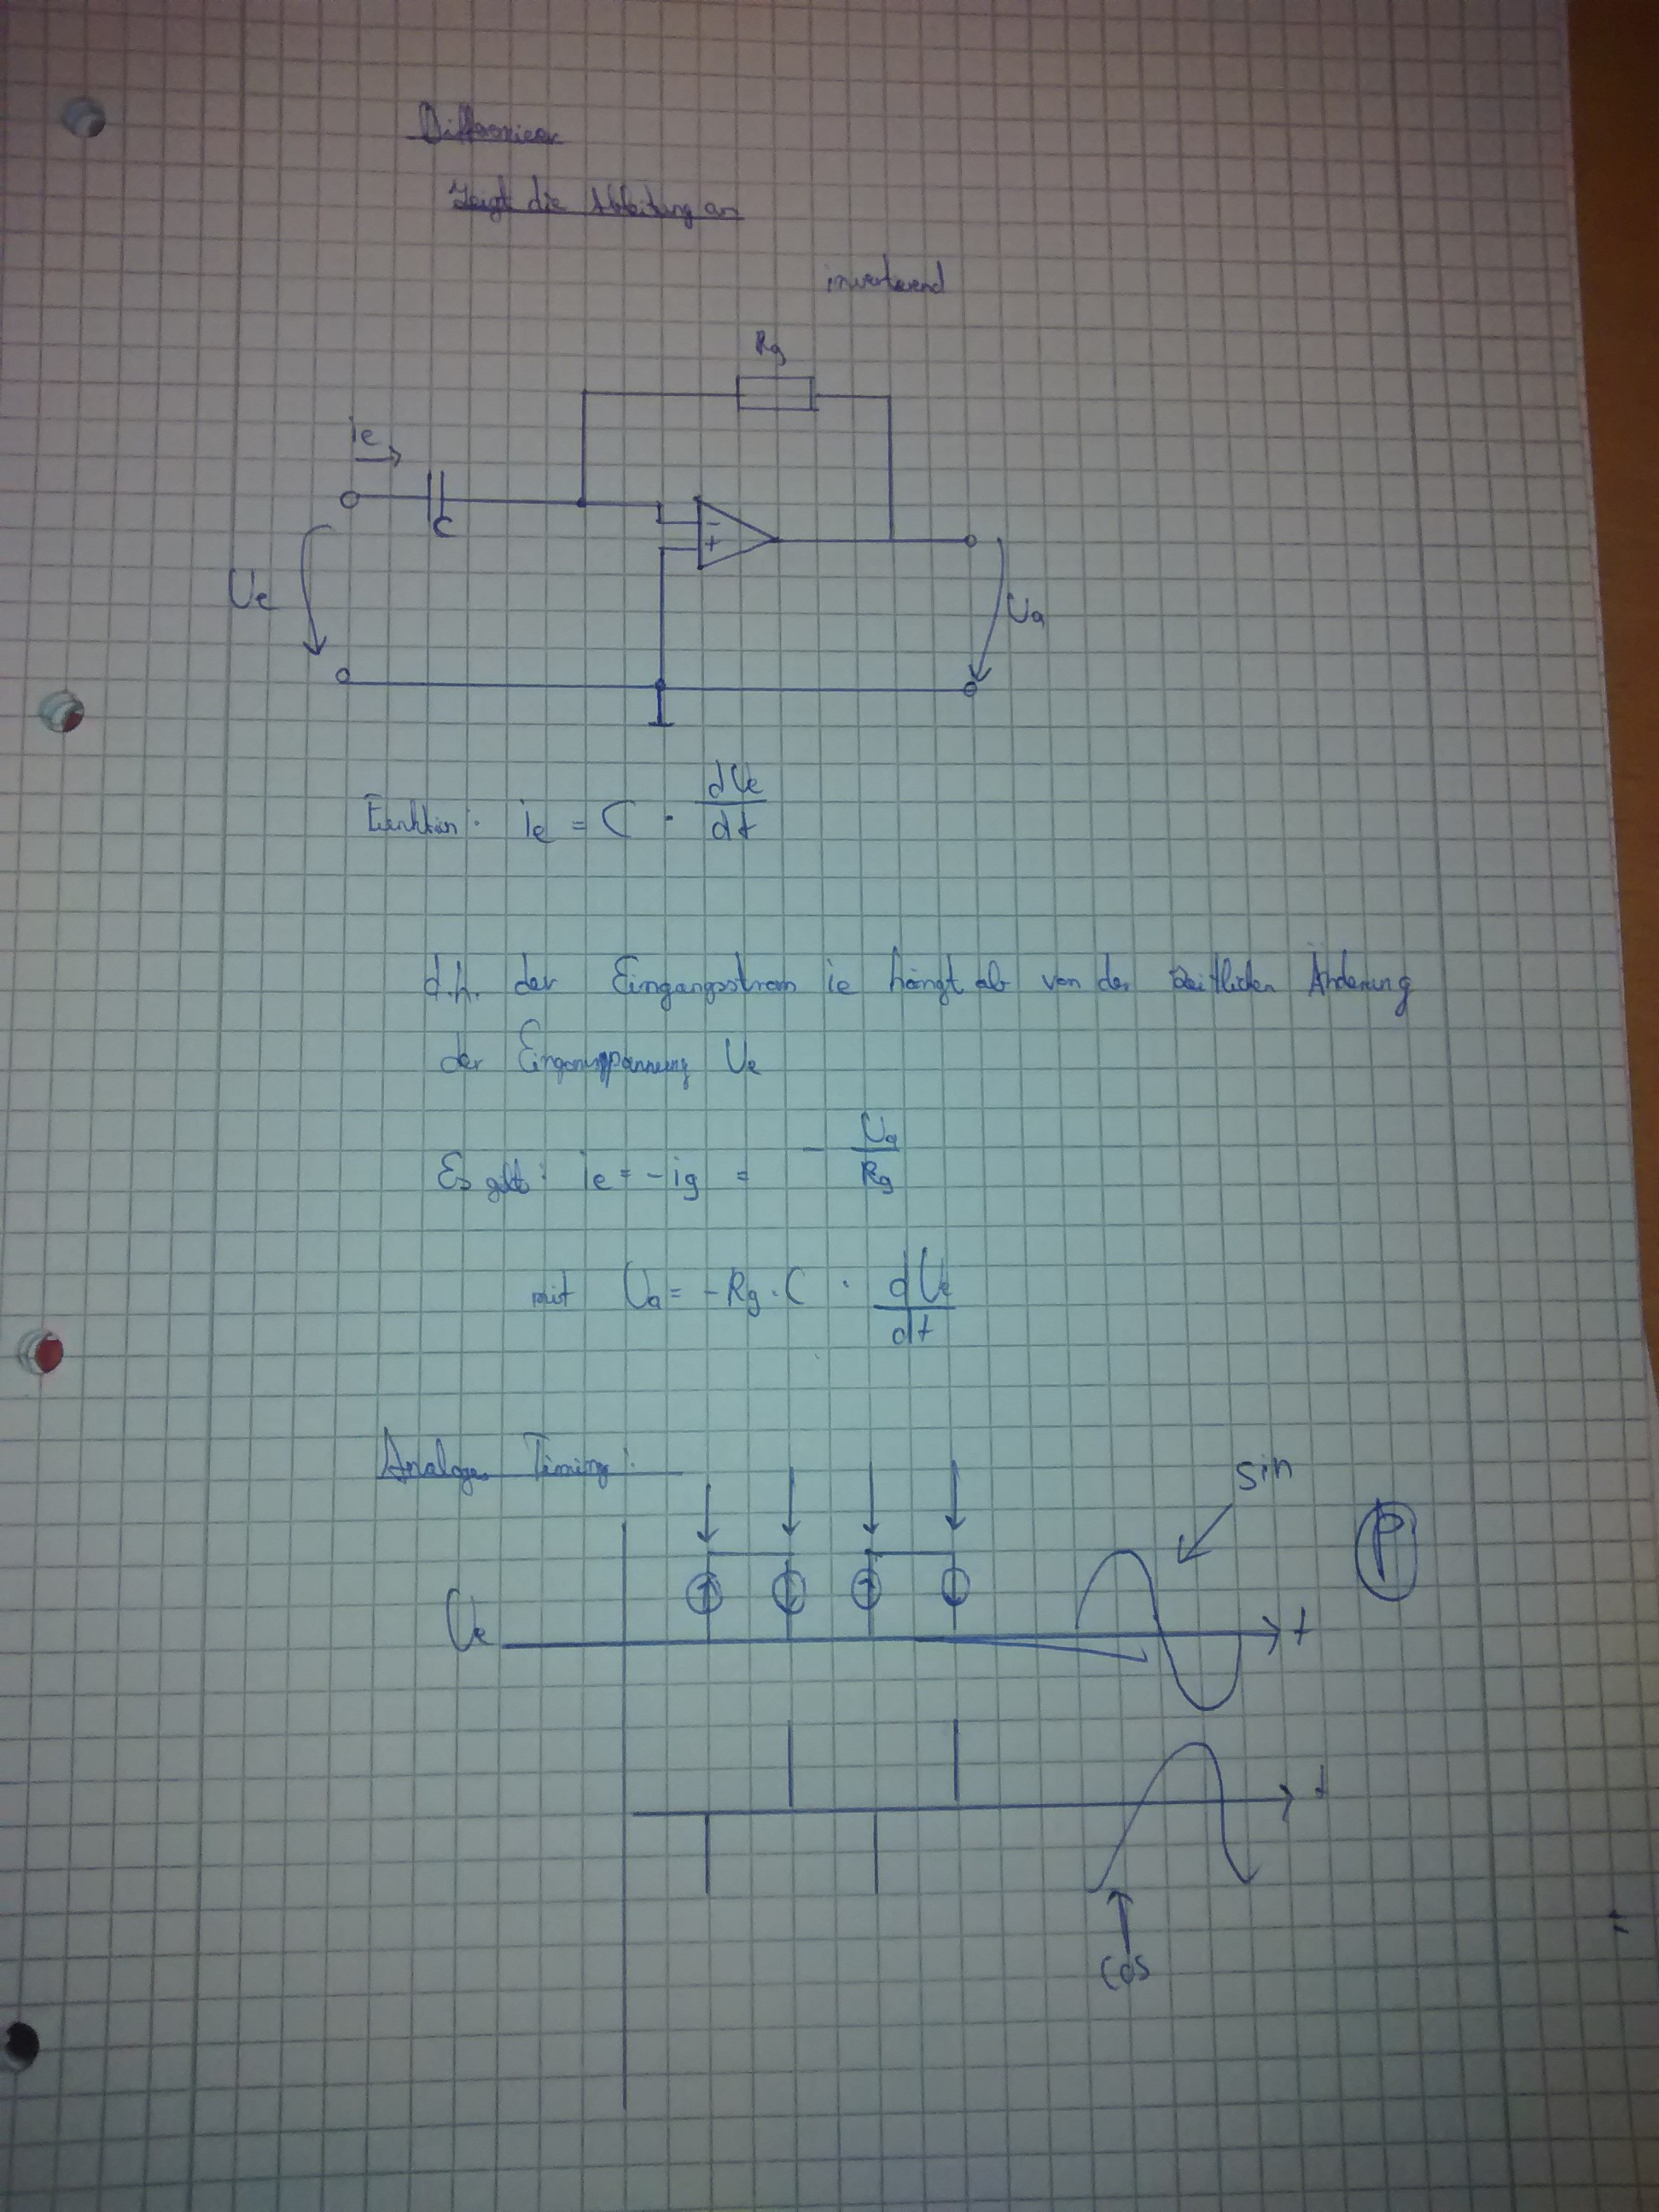 Differenzierer
Zeigt die Ableitung an
invertierend
Rg
ie
C
-
+
Ue
Ua
Funktion: ie = C · dUe/dt
d.h. der Eingangsstrom ie hängt ab von der zeitlichen Änderung
der Eingangsspannung Ue
Es gilt: ie = -ig = - Ua/Rg
mit Ua = -Rg · C · dUe/dt
Analoges Timing:
sin
P
Ue
t
t
cos